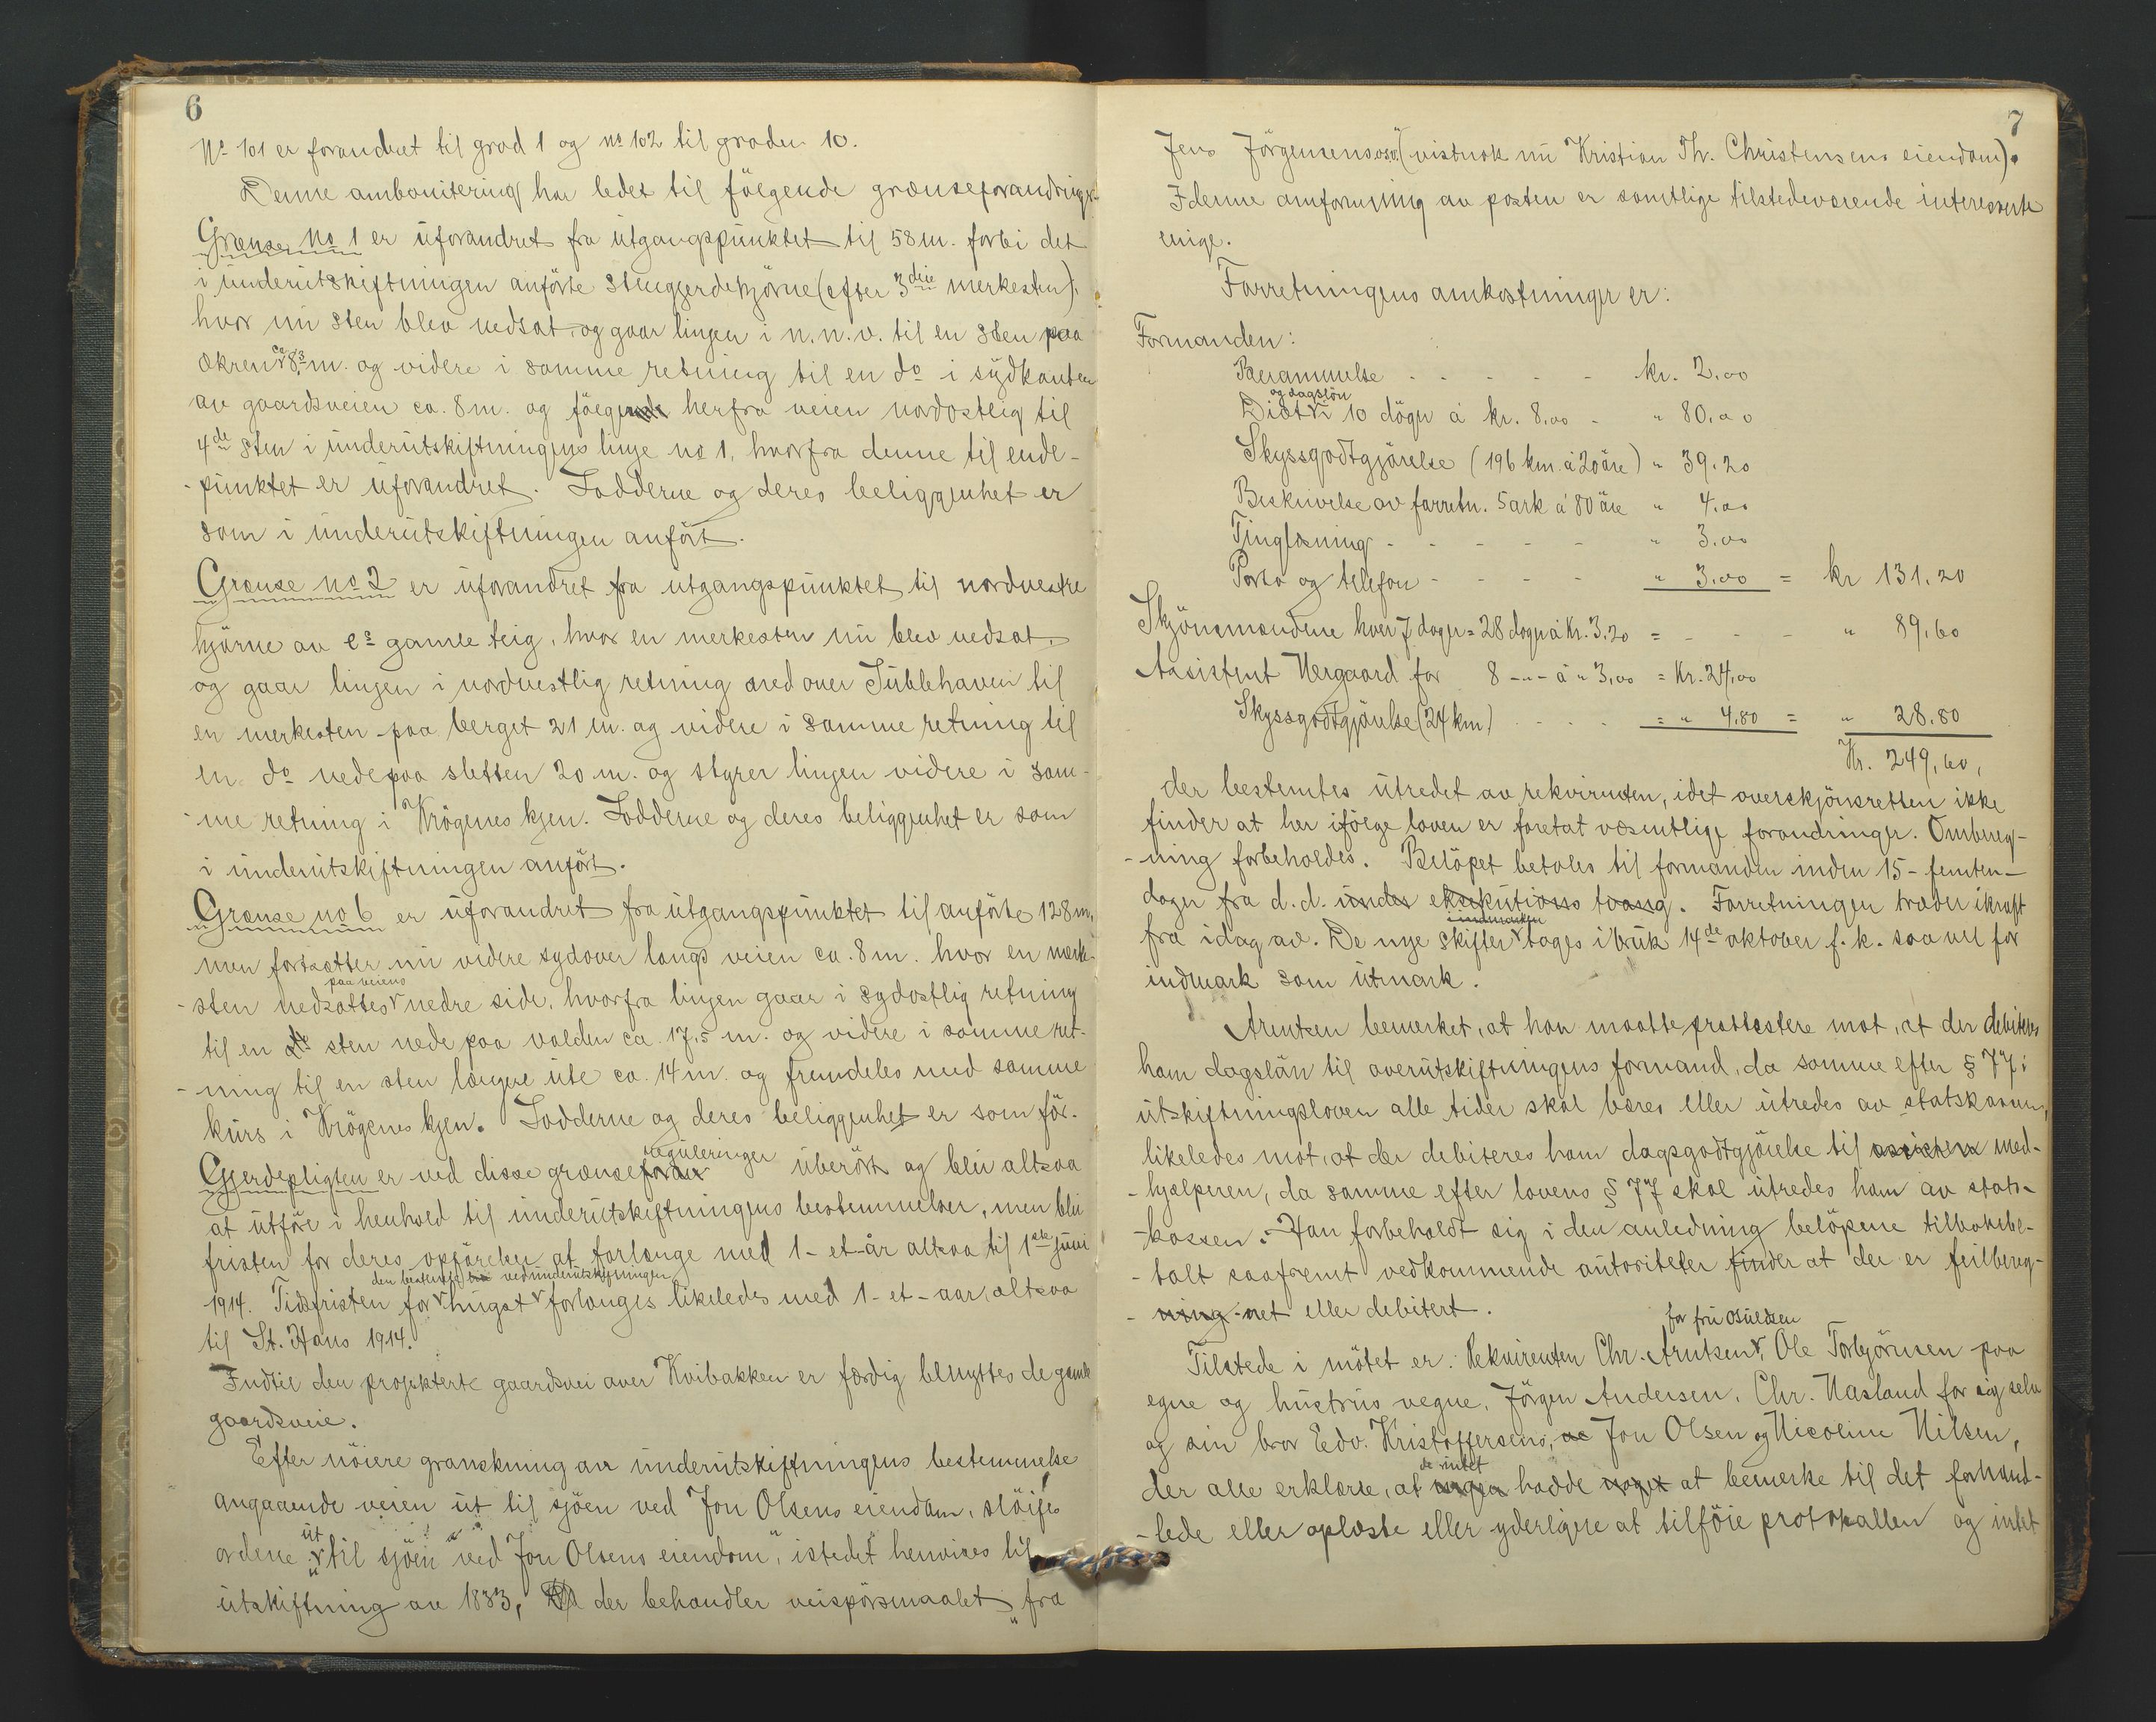 6
No 101 er forandret til grad 1 og no 102 til graden 10.
Denne ambonitering har ledet til følgende grænseforandringer
Grænse No 1 er uforandret fra utgangspunktet til 58 m. forbi det
i underutskiftningen anførte stengjerdehjørne (efter 3die merkesten),
hvor nu sten blev nedsat og gaar linjen i n.n.v. til en sten paa
akren ca 8,3 m. og videre i samme retning til en do i sydkanten
av gaardsveien ca. 8 m. og følger herfra veien nordostlig til
4de sten i underutskiftningens linje no 1, hvorfra denne til ende-
-punktet er uforandret. Lodderne og deres beliggenhet er
som i underutskiftningen anført.
Grænse no 2 er uforandret fra utgangspunktet til nordvestre
hjørne av es gamle teig, hvor en merkesten nu blev nedsat
og gaar linjen i nordvestlig retning ned over Tublehaven til
en merkesten paa berget 21 m. og videre i samme retning til
en do nede paa sletten 20 m. og styrer linjen videre i sam-
-me retning i Krøgenes kjen. Lodderne og deres beliggenhet er som
i underutskiftningen anført.
Grænse no 6 er uforandret fra utgangspunktet til anførte 128 m,
men fortsætter nu videre sydover langs veien ca. 8 m. hvor en merke-
-sten nedsattes paa veiens nedre side, hvorfra linjen gaar i sydostlig retning
til en sten nede paa volden ca. 17,5 m. og videre i samme ret-
-ning til en sten længere ute ca. 14 m. og fremdeles med samme
kurs i Krøgenes kjen. Lodderne og deres beliggenhet er som før.
Gjerdepligten er ved disse grænsereguleringer uberørt og blir altsaa
at utføre i henhold til underutskiftningens bestemmelser, men blir
fristen for deres opførelse at forlænge med 1 - et - år altsaa til 1ste juni
1914. Tidsfristen for den bestemte hugst ved underutskiftningen forlænges likeledes med 1 - et - aar, altsaa
til St. Hans 1914.
Indtil den projekterte gaardsvei over Kvibakken er færdig benyttes de gamle
gaardsveie.
Efter nøiere granskning av underutskiftningens bestemmelse
angaaende veien ut til sjøen ved Jon Olsens eiendom, sløifes
ordene "ut til sjøen ved Jon Olsens eiendom", istedet henvises til
utskiftning av 1883, der behandler veispørsmaalet "fra
7
Jens Jørgensens o.s.v." (vistnok nu Kristian Th. Christensens eiendom).
I denne omforming av posten er samtlige tilstedeværende interesserte
enige.
Forretningens omkostninger er:
Formanden:
Berammelse - - - - - kr. 2.00
Diæt og dagsløn i 10 døgn á kr. 8.00 - " 80.00
Skyssgodtgjørelse (196 km. á 20 øre) " 39.20
Beskrivelse av forretn. 5 ark á 80 øre " 4.00
Tinglæsning - - - - - " 3.00
Porto og telefon - - - - " 3.00 = kr 131.20
Skjønsmændene hver 7 dage = 28 dage á Kr. 3.20 = - - - " 89,60
Assistent Vergaard for 8 -"- á " 3,00 = Kr. 24,00
Skyssgodtgjørelse (24 km) - - - = " 4.80 = " 28.80
Kr. 249,60,
der bestemtes utredet av rekvirenten, idet overskjønsretten ikke
finder at her ifølge loven er foretat væsentlige forandringer. Ombereg-
-ning forbeholdes. Beløpet betales til formanden inden 15 - femten -
dager fra d.d. under eksekutions tvang. Forretningen træder i kraft
fra idag av. De nye skifter indmarken tages i bruk 14de oktober f. k. saavel for
indmark som utmark.
Arntsen bemerket, at han maatte prottestere mot, at der debiteres
ham dagsløn til overutskiftningens formand, da samme efter § 77 i
utskiftningsloven alle tider skal bæres eller utredes av statskassen,
likeledes mot, at der debiteres ham dagsgodtgjørelse til assistent med-
-hjælperen, da samme efter lovens § 77 skal utredes ham av stats-
-kassen. Han forbeholdt sig i den anledning beløpene tilbakebe-
-talt saafremt vedkommende autoriteter finder at der er feilbereg-
-ning -net eller debitert.
Tilstede i møtet er: Rekvirenten Chr. Arntsen for fru Osuldsen, Ole Torbjørnsen paa
egne og hustrus vegne, Jørgen Andersen, Chr. Nasland for sig selv
og sin bror Edv. Kristoffersens, Jon Olsen og Nicoline Nilsen,
der alle erklærte, at de intet hadde noget at bemerke til det forhand-
-lede eller oplæste eller yderligere at tilføie protokollen og intet